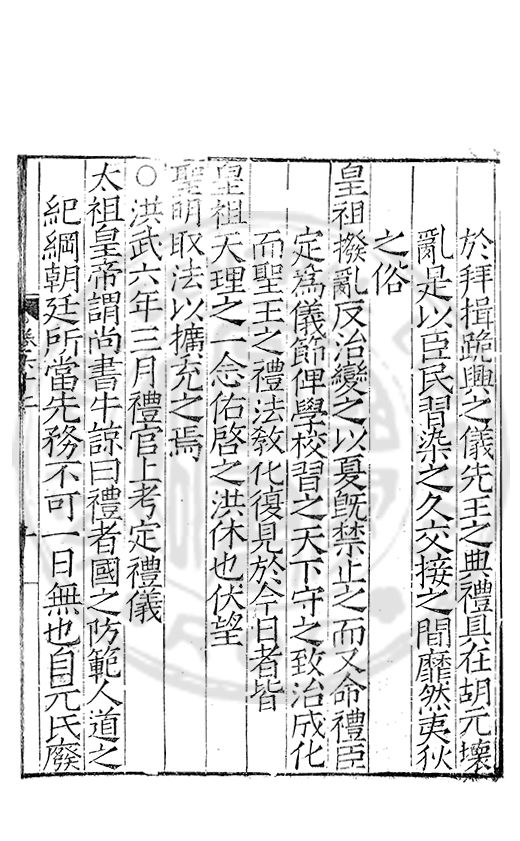 於拜揖跪興之儀先王之典禮具在胡元壞
亂是以臣民習染之久交接之間靡然夷狄
之俗
皇祖撥亂反治變之以夏既禁止之而又命禮臣
定爲儀節俾學校習之天下守之致治成化
而聖王之禮法敎化復見於今日者皆
皇祖天理之一念佑啓之洪休也伏望
聖明取法以擴充之焉
○洪武六年三月禮官上考定禮儀
太祖皇帝謂尚書牛諒曰禮者國之防範人道之
紀綱朝廷所當先務不可一日無也自元氏廢